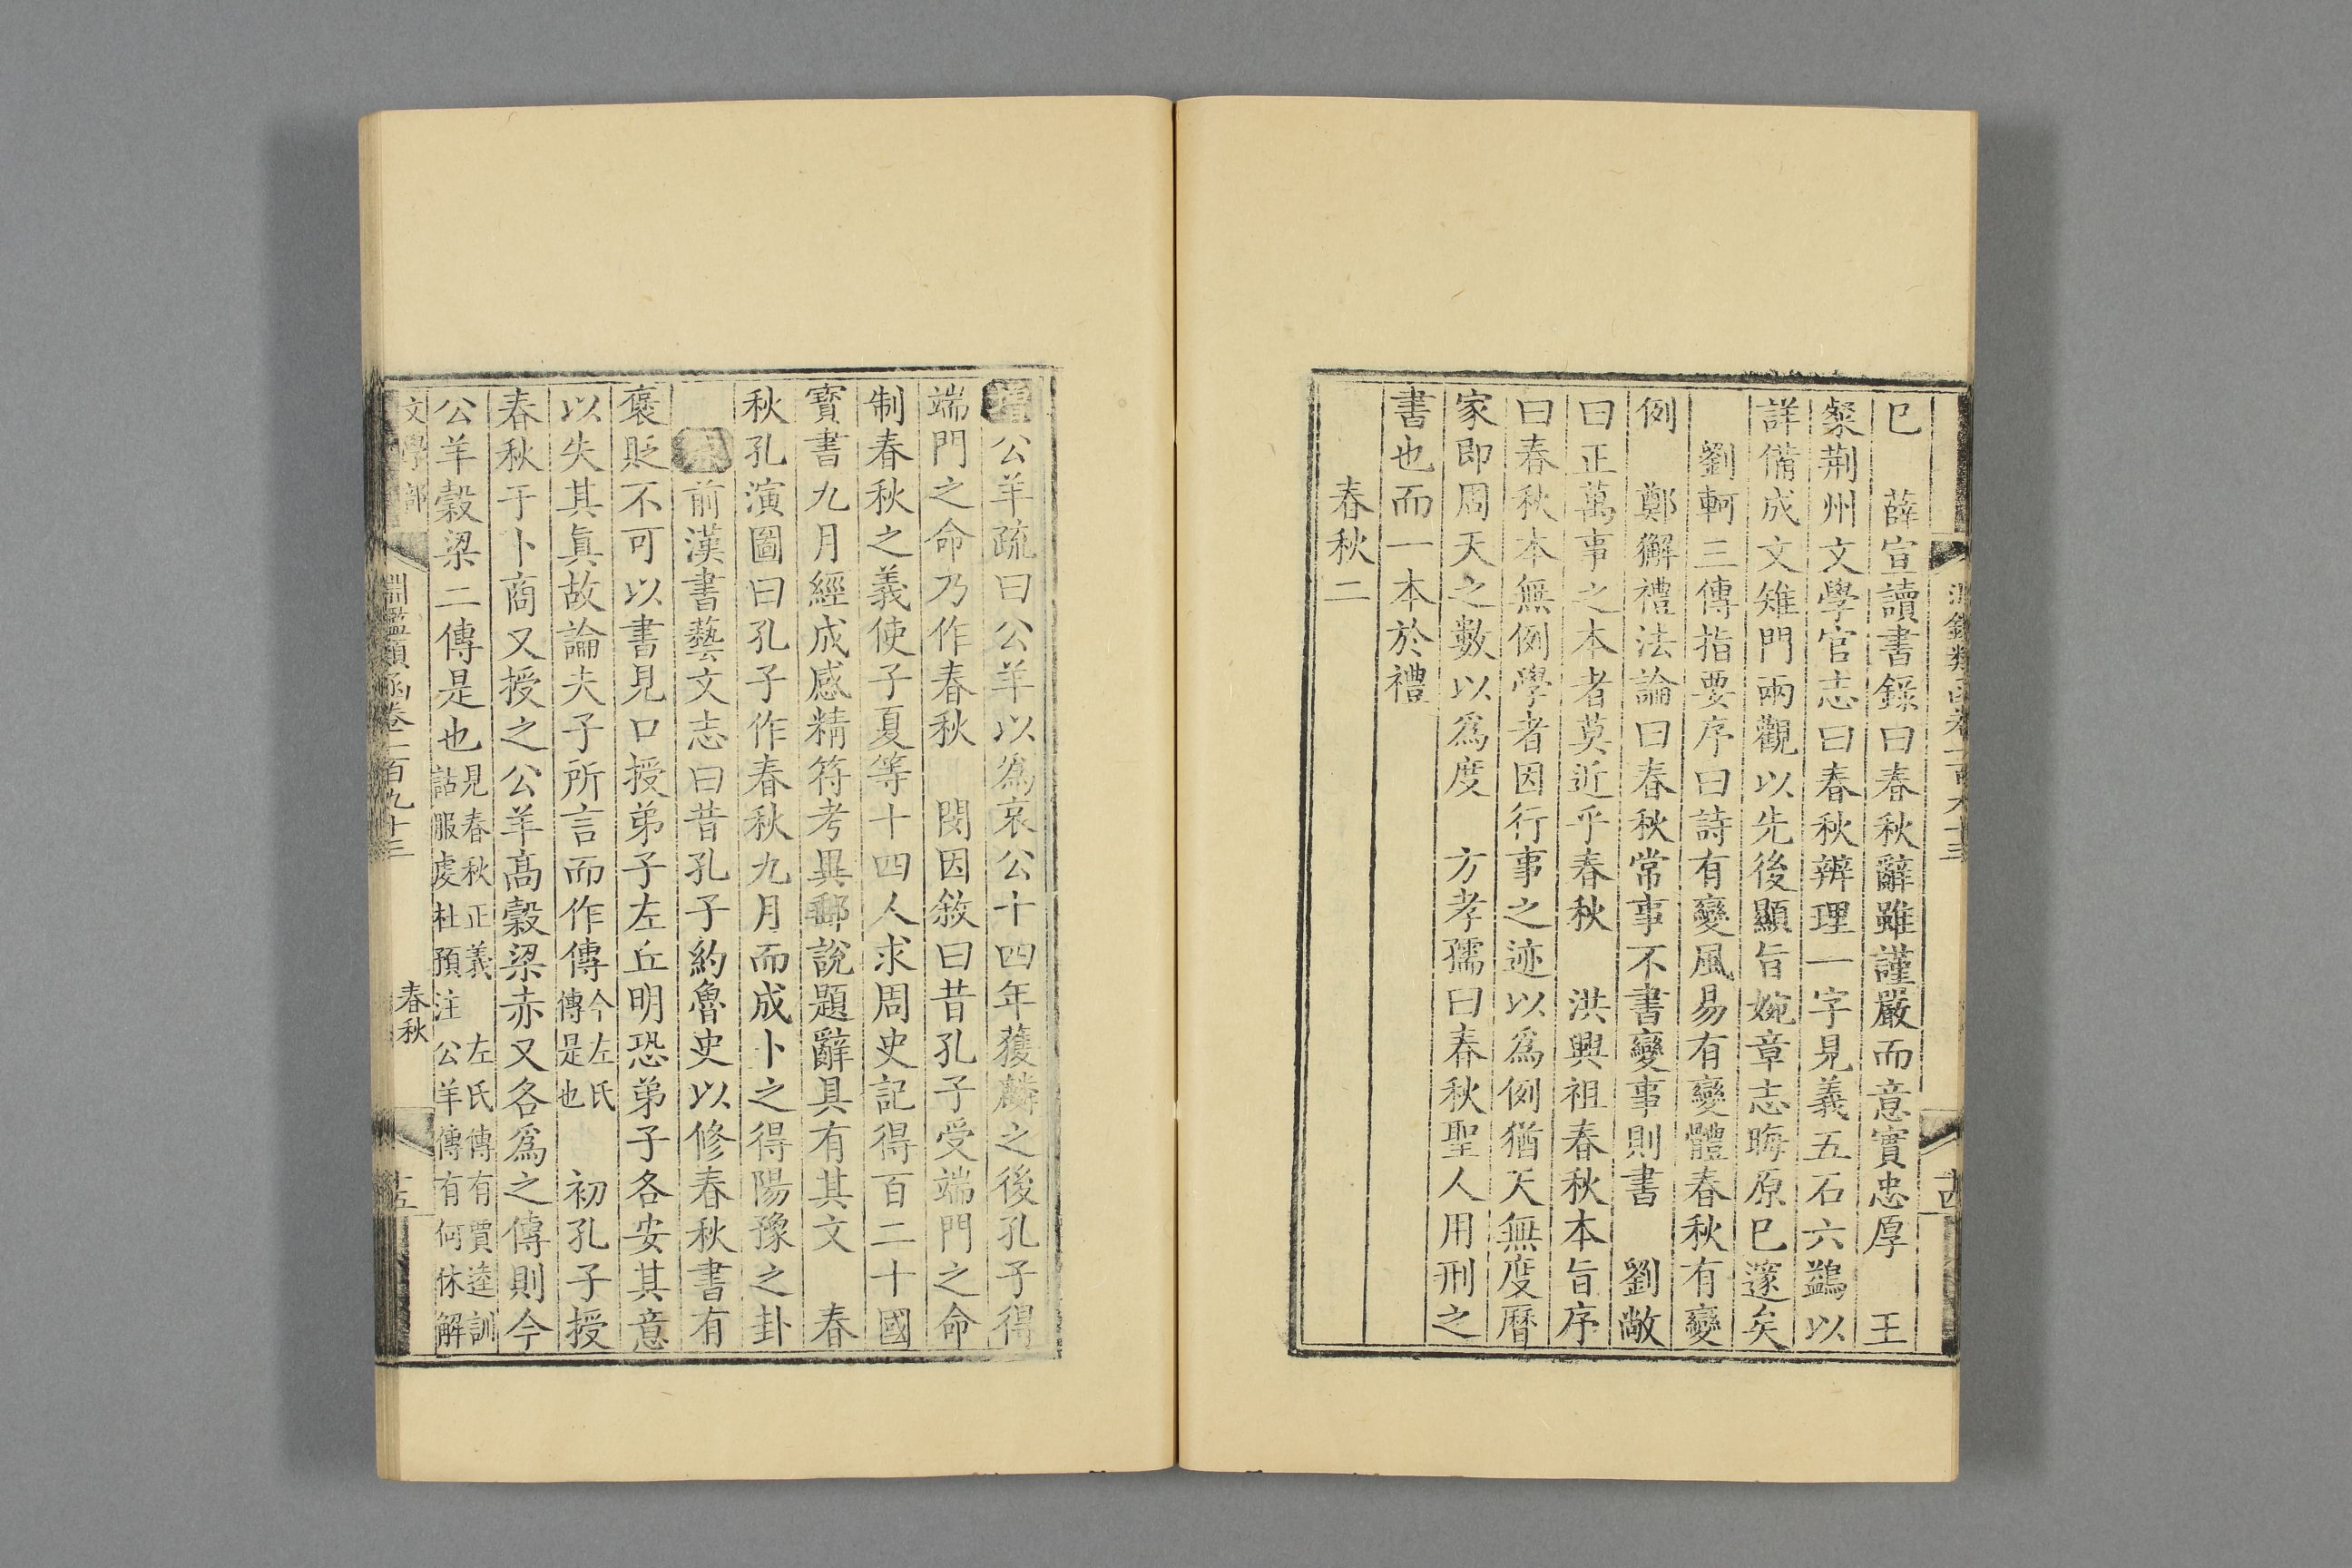 已　薛宣讀書錄曰春秋辭雖謹嚴而意實忠厚　王
粲荆州文學官志曰春秋辨理一字見義五石六鷁以
詳備成文雉門兩觀以先後顯旨婉章志晦原已邃矣
劉軻三傳指要序曰詩有變風易有變體春秋有變
例　鄭獬禮法論曰春秋常事不書變事則書　劉敞
曰正萬事之本者莫近乎春秋　洪興祖春秋本旨序
曰春秋本無例學者因行事之迹以爲例猶天無度曆
家即周天之數以爲度　方孝孺曰春秋聖人用刑之
書也而一本於禮
春秋二
增公羊疏曰公羊以爲哀公十四年獲麟之後孔子得
端門之命乃作春秋　閔因敘曰昔孔子受端門之命
制春秋之義使子夏等十四人求周史記得百二十國
寶書九月經成感精符考異郵說題辭具有其文　春
秋孔演圖曰孔子作春秋九月而成卜之得陽豫之卦
前漢書藝文志曰昔孔子約魯史以修春秋書有
褒貶不可以書見口授弟子左丘明恐弟子各安其意
以失其眞故論夫子所言而作傳今左氏傳是也　初孔子授
春秋于卜商又授之公羊高穀梁赤又各爲之傳則今
公羊穀梁二傳是也見春秋正義　左氏傳有賈逵訓詁服虔杜預注　公羊傳有何休解
文學部　淵鑑類函卷一百九十三　春秋　十五